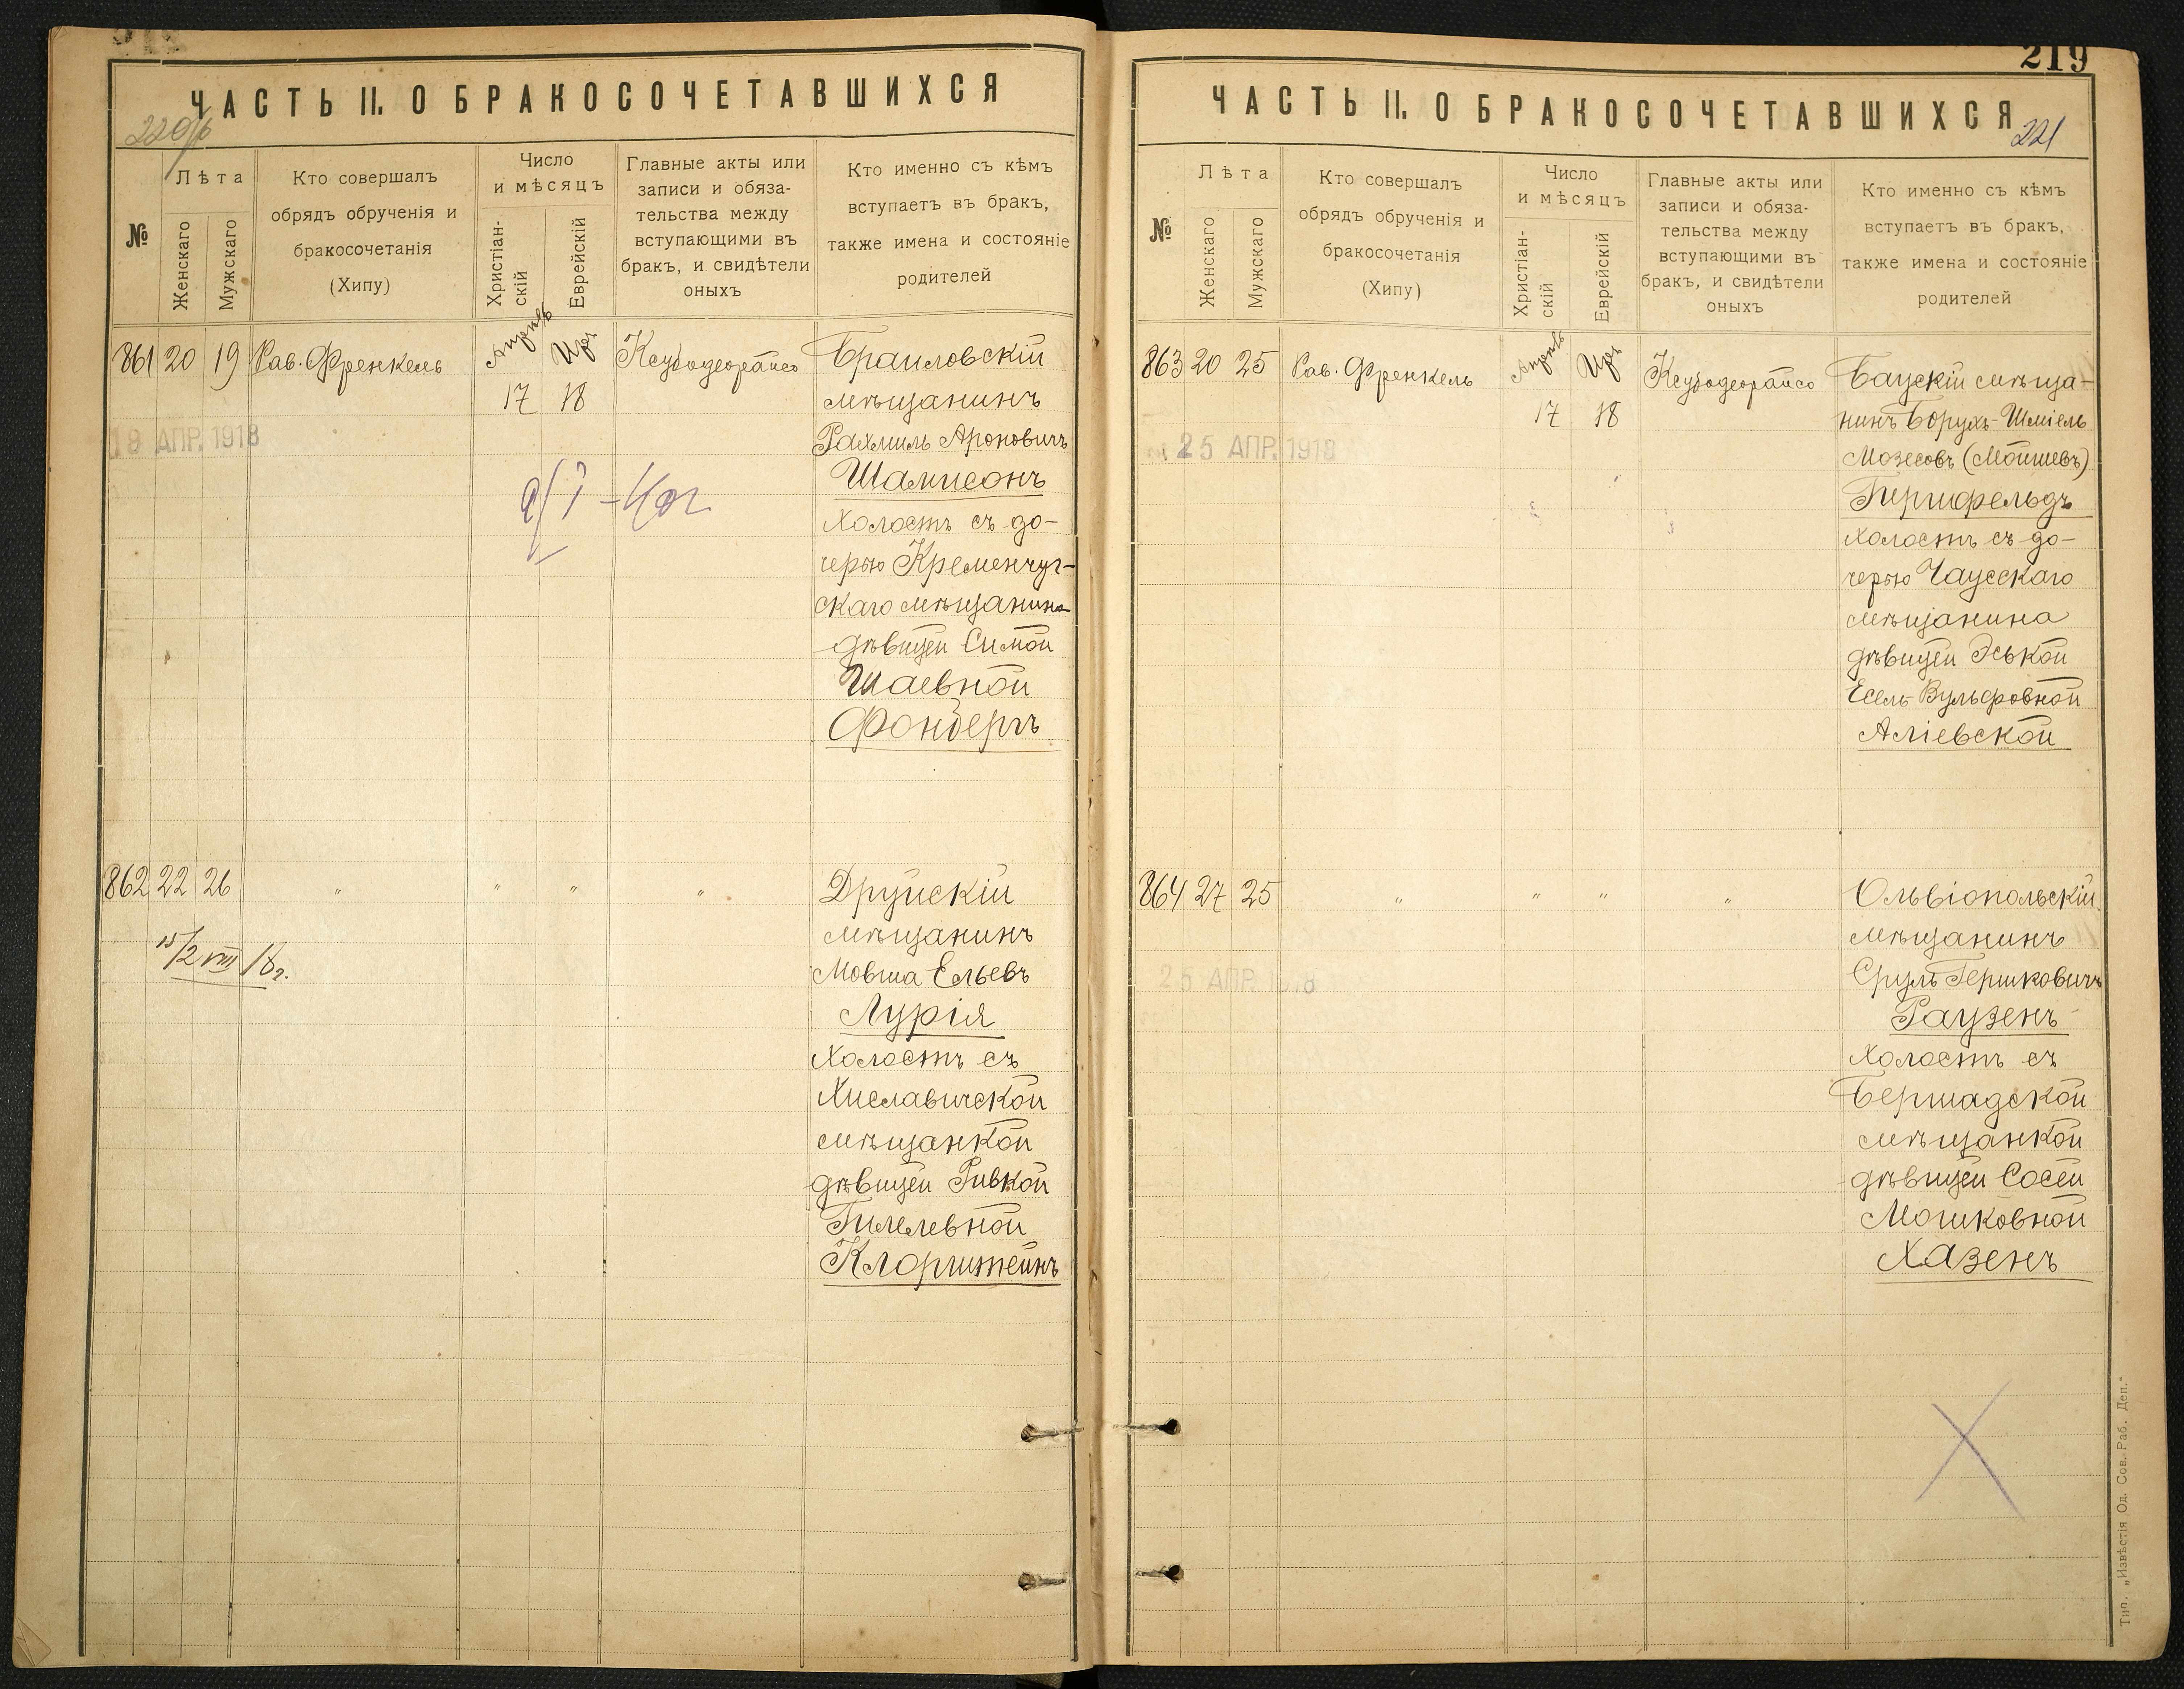 ЧАСТЬ II. О БРАКОСОЧЕТАВШИХСЯ
220/б
№
Лѣта
Женскаго
Мужскаго
Кто совершалъ
обрядъ обрученія и
бракосочетанія
(Хипу)
Число
и мѣсяцъ
Христіан-
скій
Еврейскій
Главные акты или
записи и обяза-
тельства между
вступающими въ
бракъ, и свидѣтели
оныхъ
Кто именно съ кѣмъ
вступаетъ въ бракъ,
также имена и состояніе
родителей
861 20 19 Рав. Френкель Апрель Иръ Ксубодеорайсо Браиловскій
17 18 мѣщанинъ
19 АПР. 1918
Рахмиль Ароновичъ
Шамисонъ
холостъ съ до-
черью Кременчуг-
скаго мѣщанина
дѣвицей Симой
Шаевной
Фонбергъ
862 22 26 " " " " Друйскій
мѣщанинъ
15/2 VIII 18 г.
Мовша Ельевъ
Лурія
холостъ съ
Хиславичской
мѣщанкой
дѣвицей Ривкой
Гилелевной
Клорштейнъ
219
ЧАСТЬ II. О БРАКОСОЧЕТАВШИХСЯ
221
№
Лѣта
Женскаго
Мужскаго
Кто совершалъ
обрядъ обрученія и
бракосочетанія
(Хипу)
Число
и мѣсяцъ
Христіан-
скій
Еврейскій
Главные акты или
записи и обяза-
тельства между
вступающими въ
бракъ, и свидѣтели
оныхъ
Кто именно съ кѣмъ
вступаетъ въ бракъ,
также имена и состояніе
родителей
863 20 25 Рав. Френкель Апрель Иръ Ксубодеорайсо Баускій мѣща-
17 18 нинъ Борухъ-Шміель
25 АПР. 1918
Мозесовъ (Мойшевъ)
Гиршфельдъ
холостъ съ до-
черью Чаусскаго
мѣщанина
дѣвицей Эськой
Есель-Вульфовной
Аліевской
864 27 25 " " " " Ольвіопольскій
мѣщанинъ
25 АПР. 1918
Сруль Гершковичъ
Раузенъ
холостъ съ
Бершадской
мѣщанкой
дѣвицей Сосей
Мошковной
Хазенъ
Тип. „Извѣстія Од. Сов. Раб. Деп."